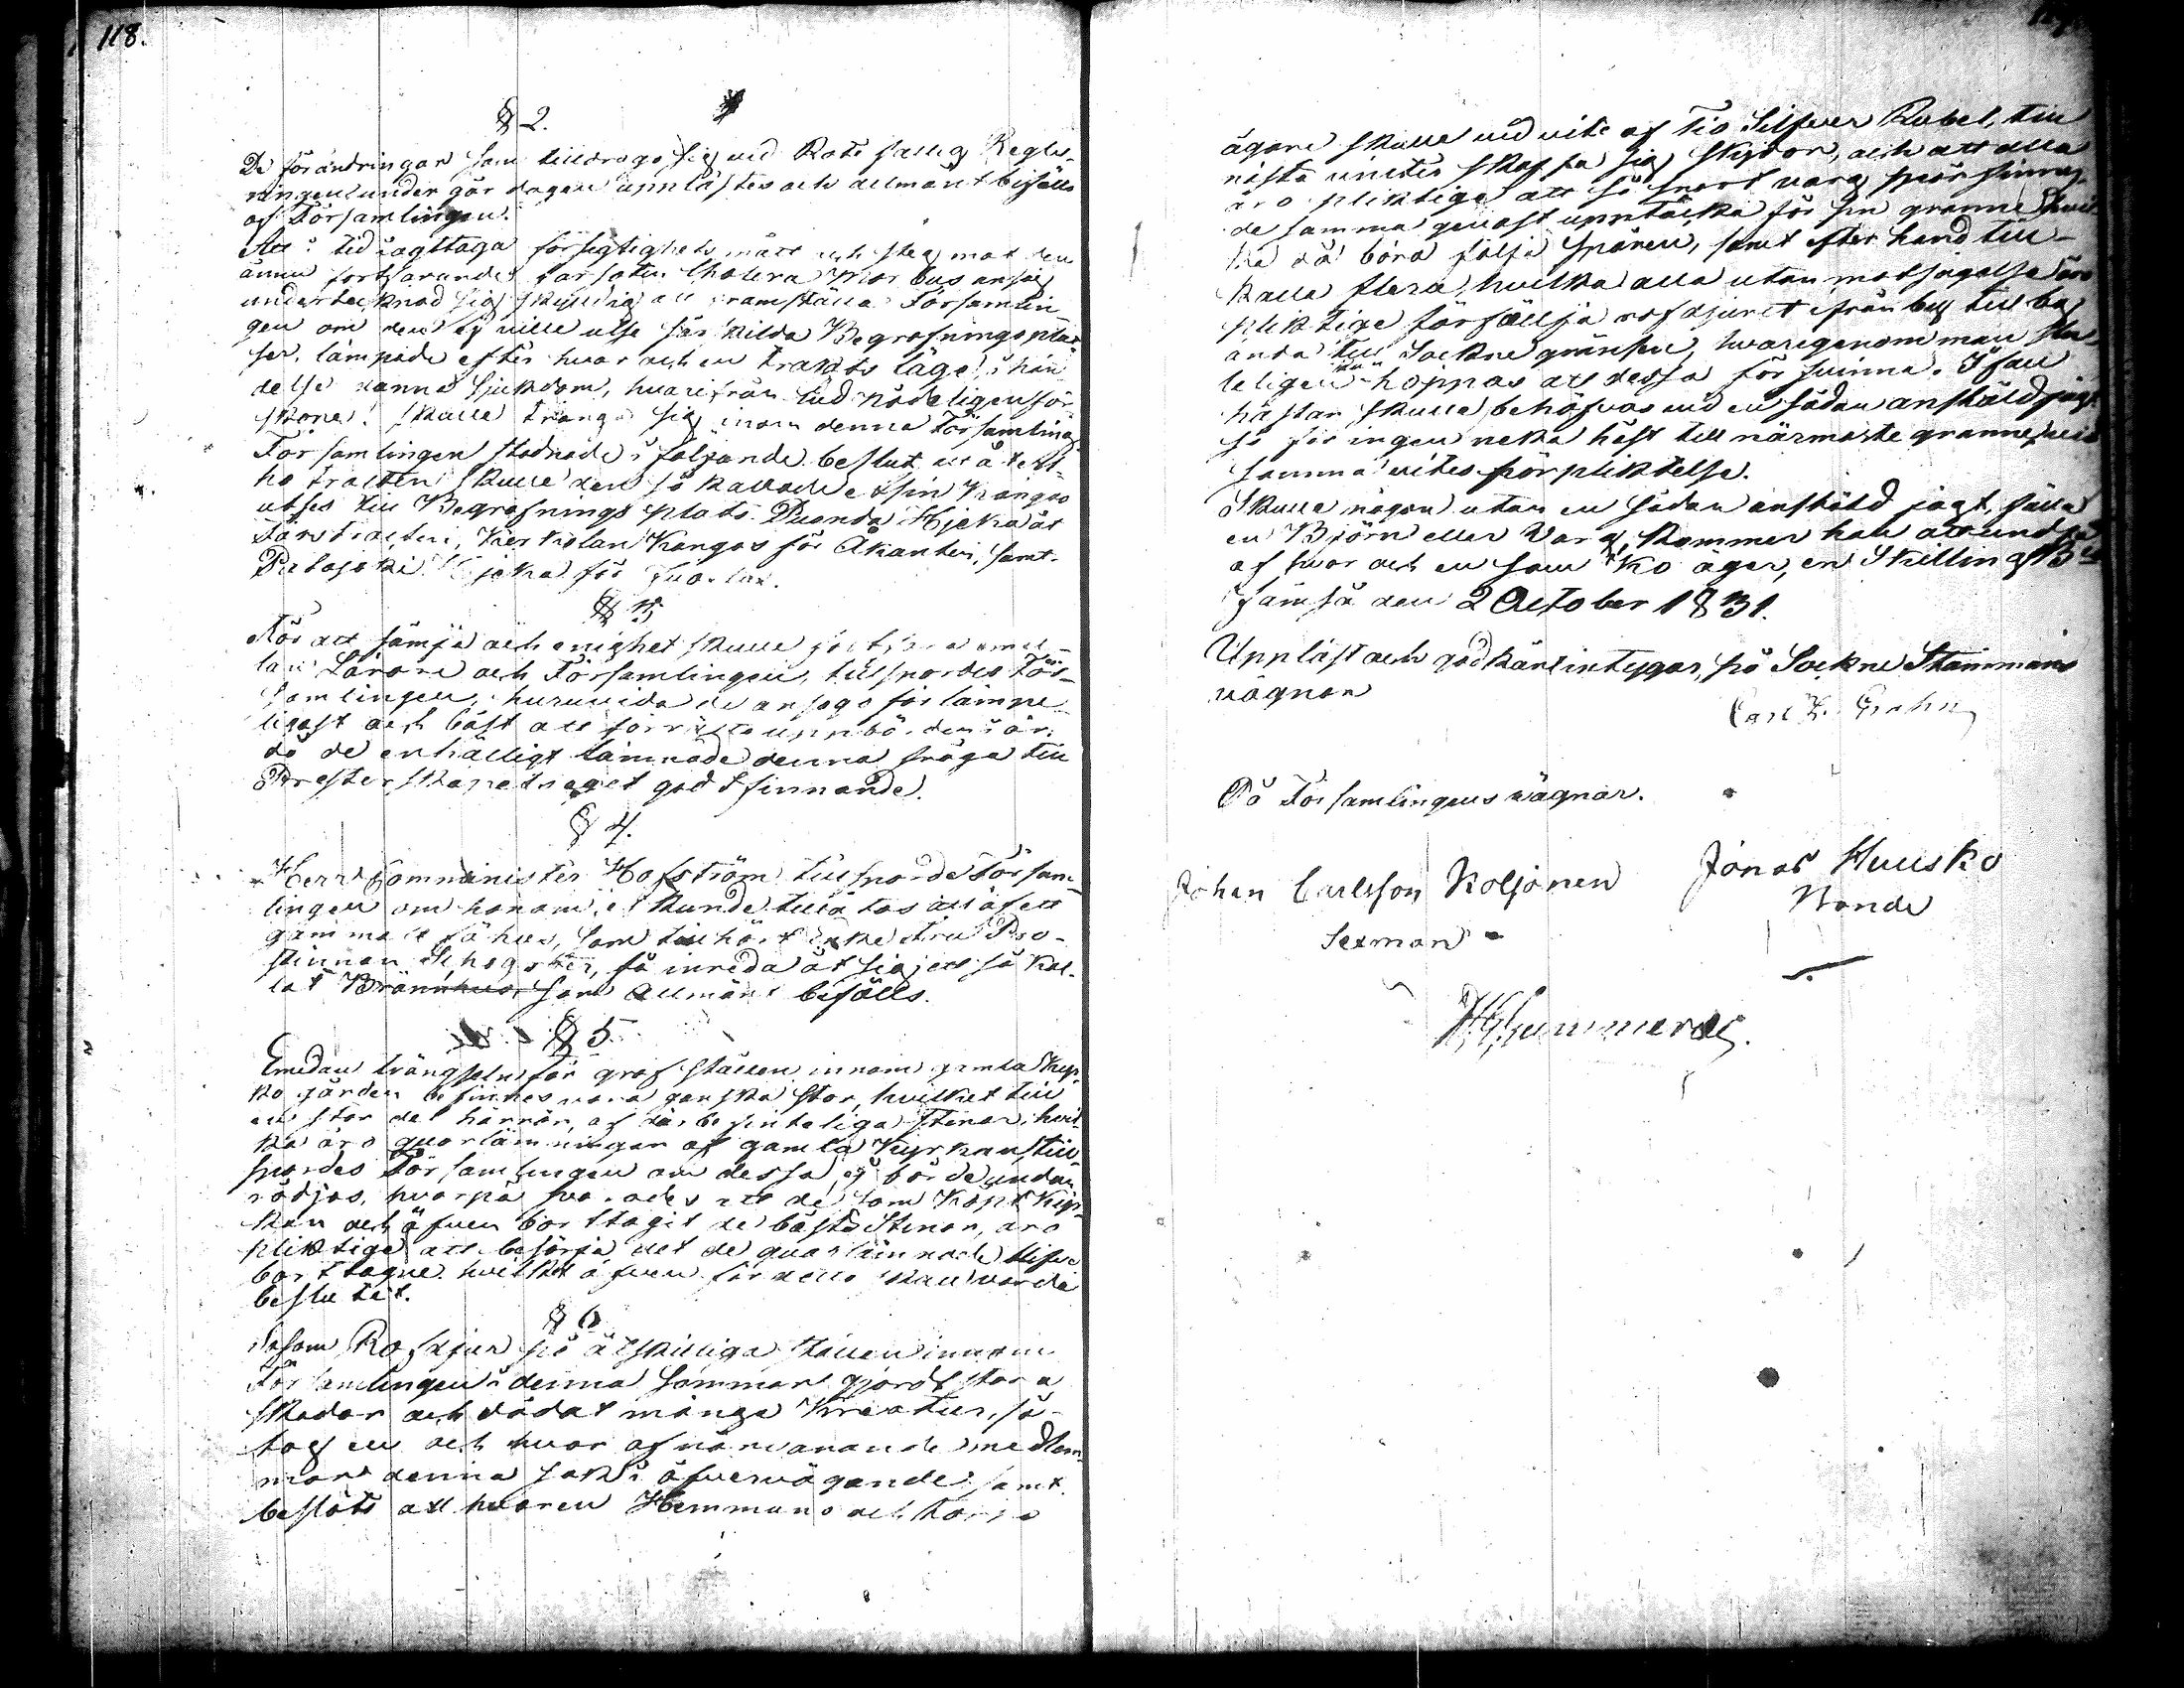 118.
§ 2.
De förändringar som tilldrogo sig vid Rote fallig Regle-
ringen under går dagen upplästes och allmänt bifälls
af Församlingen.
Att i tid iagttaga försigtighets mått och steg mot den
ännu fortfarande farsoten Cholera Morbus ansåg
undertecknad sig skyldig att framställa Församlin-
gen om den ej ville utse särskilda Begrafningsplat-
ser, lämpade efter hvar och en trakts läge, i hän-
delse denna sjukdom, hvarifrån Gud nådeligen för-
skone! skulle tränga sig inom denna Församling
Församlingen stadnade i följande beslut att å
trakten skulle den så kallade Kangas
utses till Begrafnings plats. Puonda Hjeka åt
trakten, Kerkolan Kangas för Åkanten, samt
för
§ 3.
För att sämja och enighet skulle emel-
lan Lärare och Församlingen, tillspordes För-
samlingen, huruvida de ansågo för lämpe-
ligast och bäst att förrätta uppbörden i år,
då de enhälligt lämnade denna fråga till
Presterskapets eget godtfinnande.
§ 4.
Herr Comminister Hofström tillsporde Försam-
lingen om honom ej kunde tillåtas att af ett
gammalt fähus, som tillhört Enke Fru Pro-
stinnan, få inreda åt sig ett så kal-
lat Brännhus, som Allmänt bifälls.
§ 5
Emedan trängseln för graf ställen innom gamla Kyr-
ko gården befinnes vara ganska stor, hvilket till
en stor del härrör af där befinteliga stenar, hvil-
ka äro quarlämningar af gamla Kyrkan, till-
spordes Församlingen om dessa ej borde undan
rödjas, hvarpå svarades att de som Köpt Kyr-
kan och äfven borttagit de bästa Stenar, äro
pliktige att besörja det de quarlämnade blifva
borttagne hvilket äfven
beslutet.
§ 6
Såsom Rofdjur på åtskilliga ställen innom
Församlingen denna sommar gjordt stora
skador och dödat många Kreatur, så
tog en och hvar af närvarande medlem-
mar denna sak i öfvervägande samt
beslöts att hvaren Hemmans och torp
ägare skulle vid vite af Tio Silfver Rubel, till
nästa vinter skaffa sig skydor, och att alla
äro pliktige att så snart varg spår finnas
de samma genast upptäcka för sin granne hvil-
ka då böra följa spåren, samt efter hand till-
kalla flera, hvilka alla utan motsägelse äro
pliktige förföllja rofdjuret ifrån by till by
ända till Sockne gränsen, hvarigenom man
hoppas att dessa försvinna. I fall
hästar skulle behöfvas vid en sådan anstäld jagt
så får ingen neka häst till närmaste granne vid
samma vites förpliktelse.
Skulle någon utan en sådan anstäld jagt, fälla
en Björn eller Varg, kommer han att undfå
af hvar och en som Ko äger, en Skilling
Jämsä den 2 October 1831.
Uppläst och godkänt intygar, på Sockne Stämmans
vägnar
Carl
På Församlingens vägnar.
Johan Carlsson Koljonen
Sexman
Jonas Huusko
Bonde